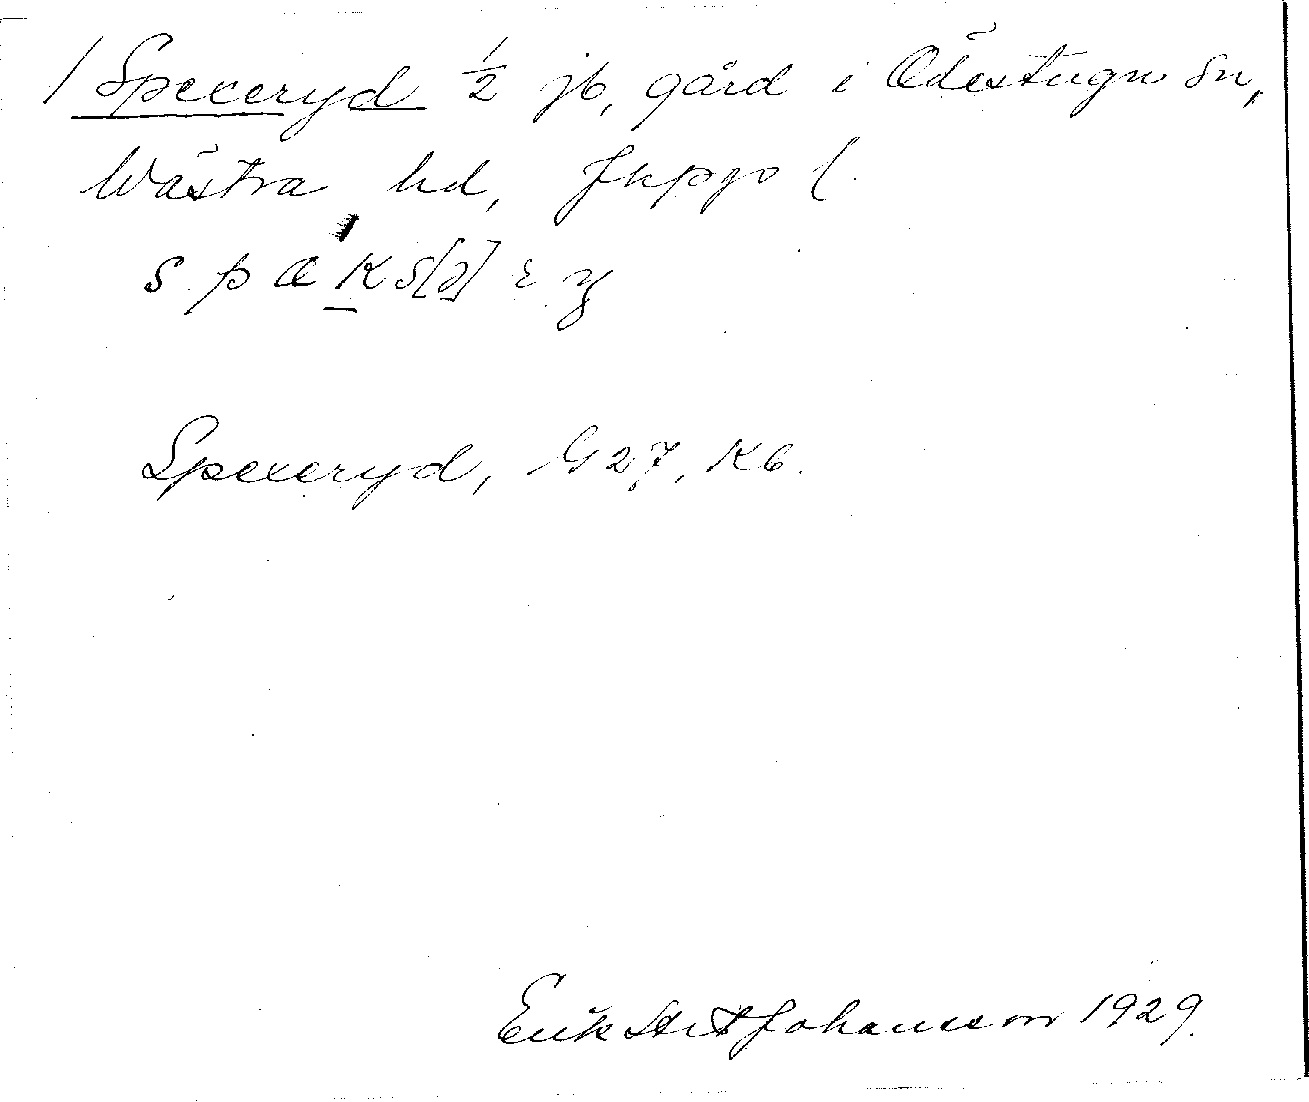 / Spexeryd 1/2 jb, gård i Ödestugu sn,
Västra hd, Jkpgs l.
s p æ k s[ə] r y
Spexeryd, G27, K6.
Erik Johansson 1929.